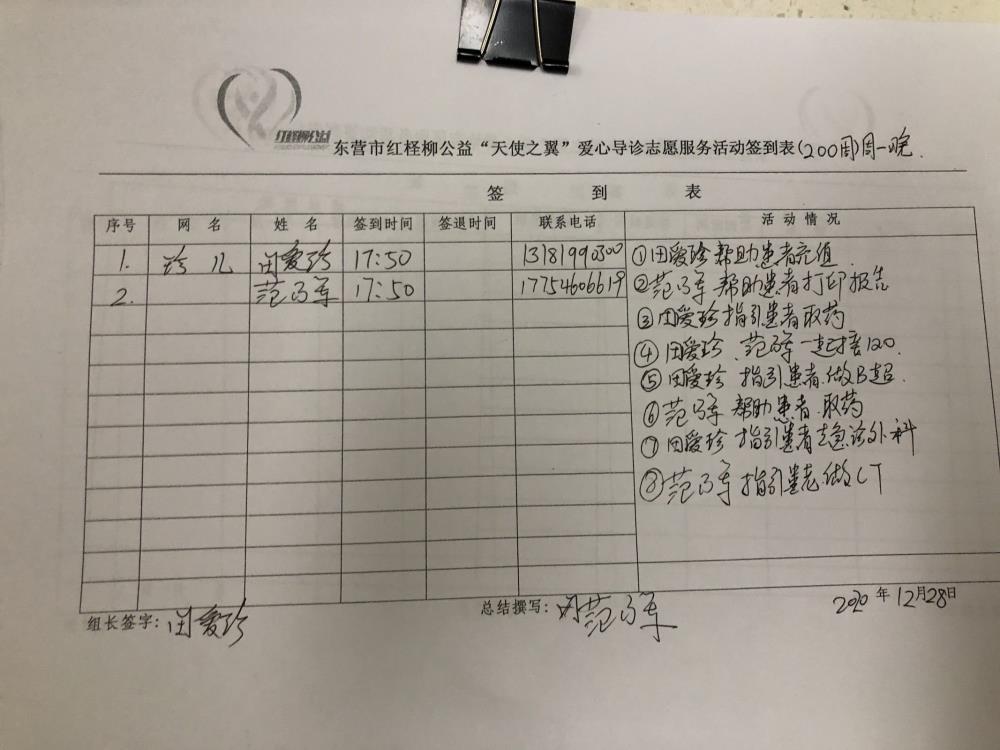 红柽柳公益
东营市红柽柳公益“天使之翼”爱心导诊志愿服务活动签到表(200周)周一晚
签 到 表
序号 网 名 姓 名 签到时间 签退时间 联系电话 活 动 情 况
1. 珍 儿 田爱珍 17:50 13181990300 ①田爱珍 帮助患者充值
2. 范 军 17:50 17754606619 ②范 军 帮助患者打印报告
③田爱珍指引患者取药
④田爱珍、范 军一起接120.
⑤田爱珍 指引患者做B超.
⑥范 军 帮助患者取药
⑦田爱珍 指引患者去急诊外科
⑧范 军指引患者做CT
组长签字: 田爱珍 总结撰写: 范 军 2020年12月28日